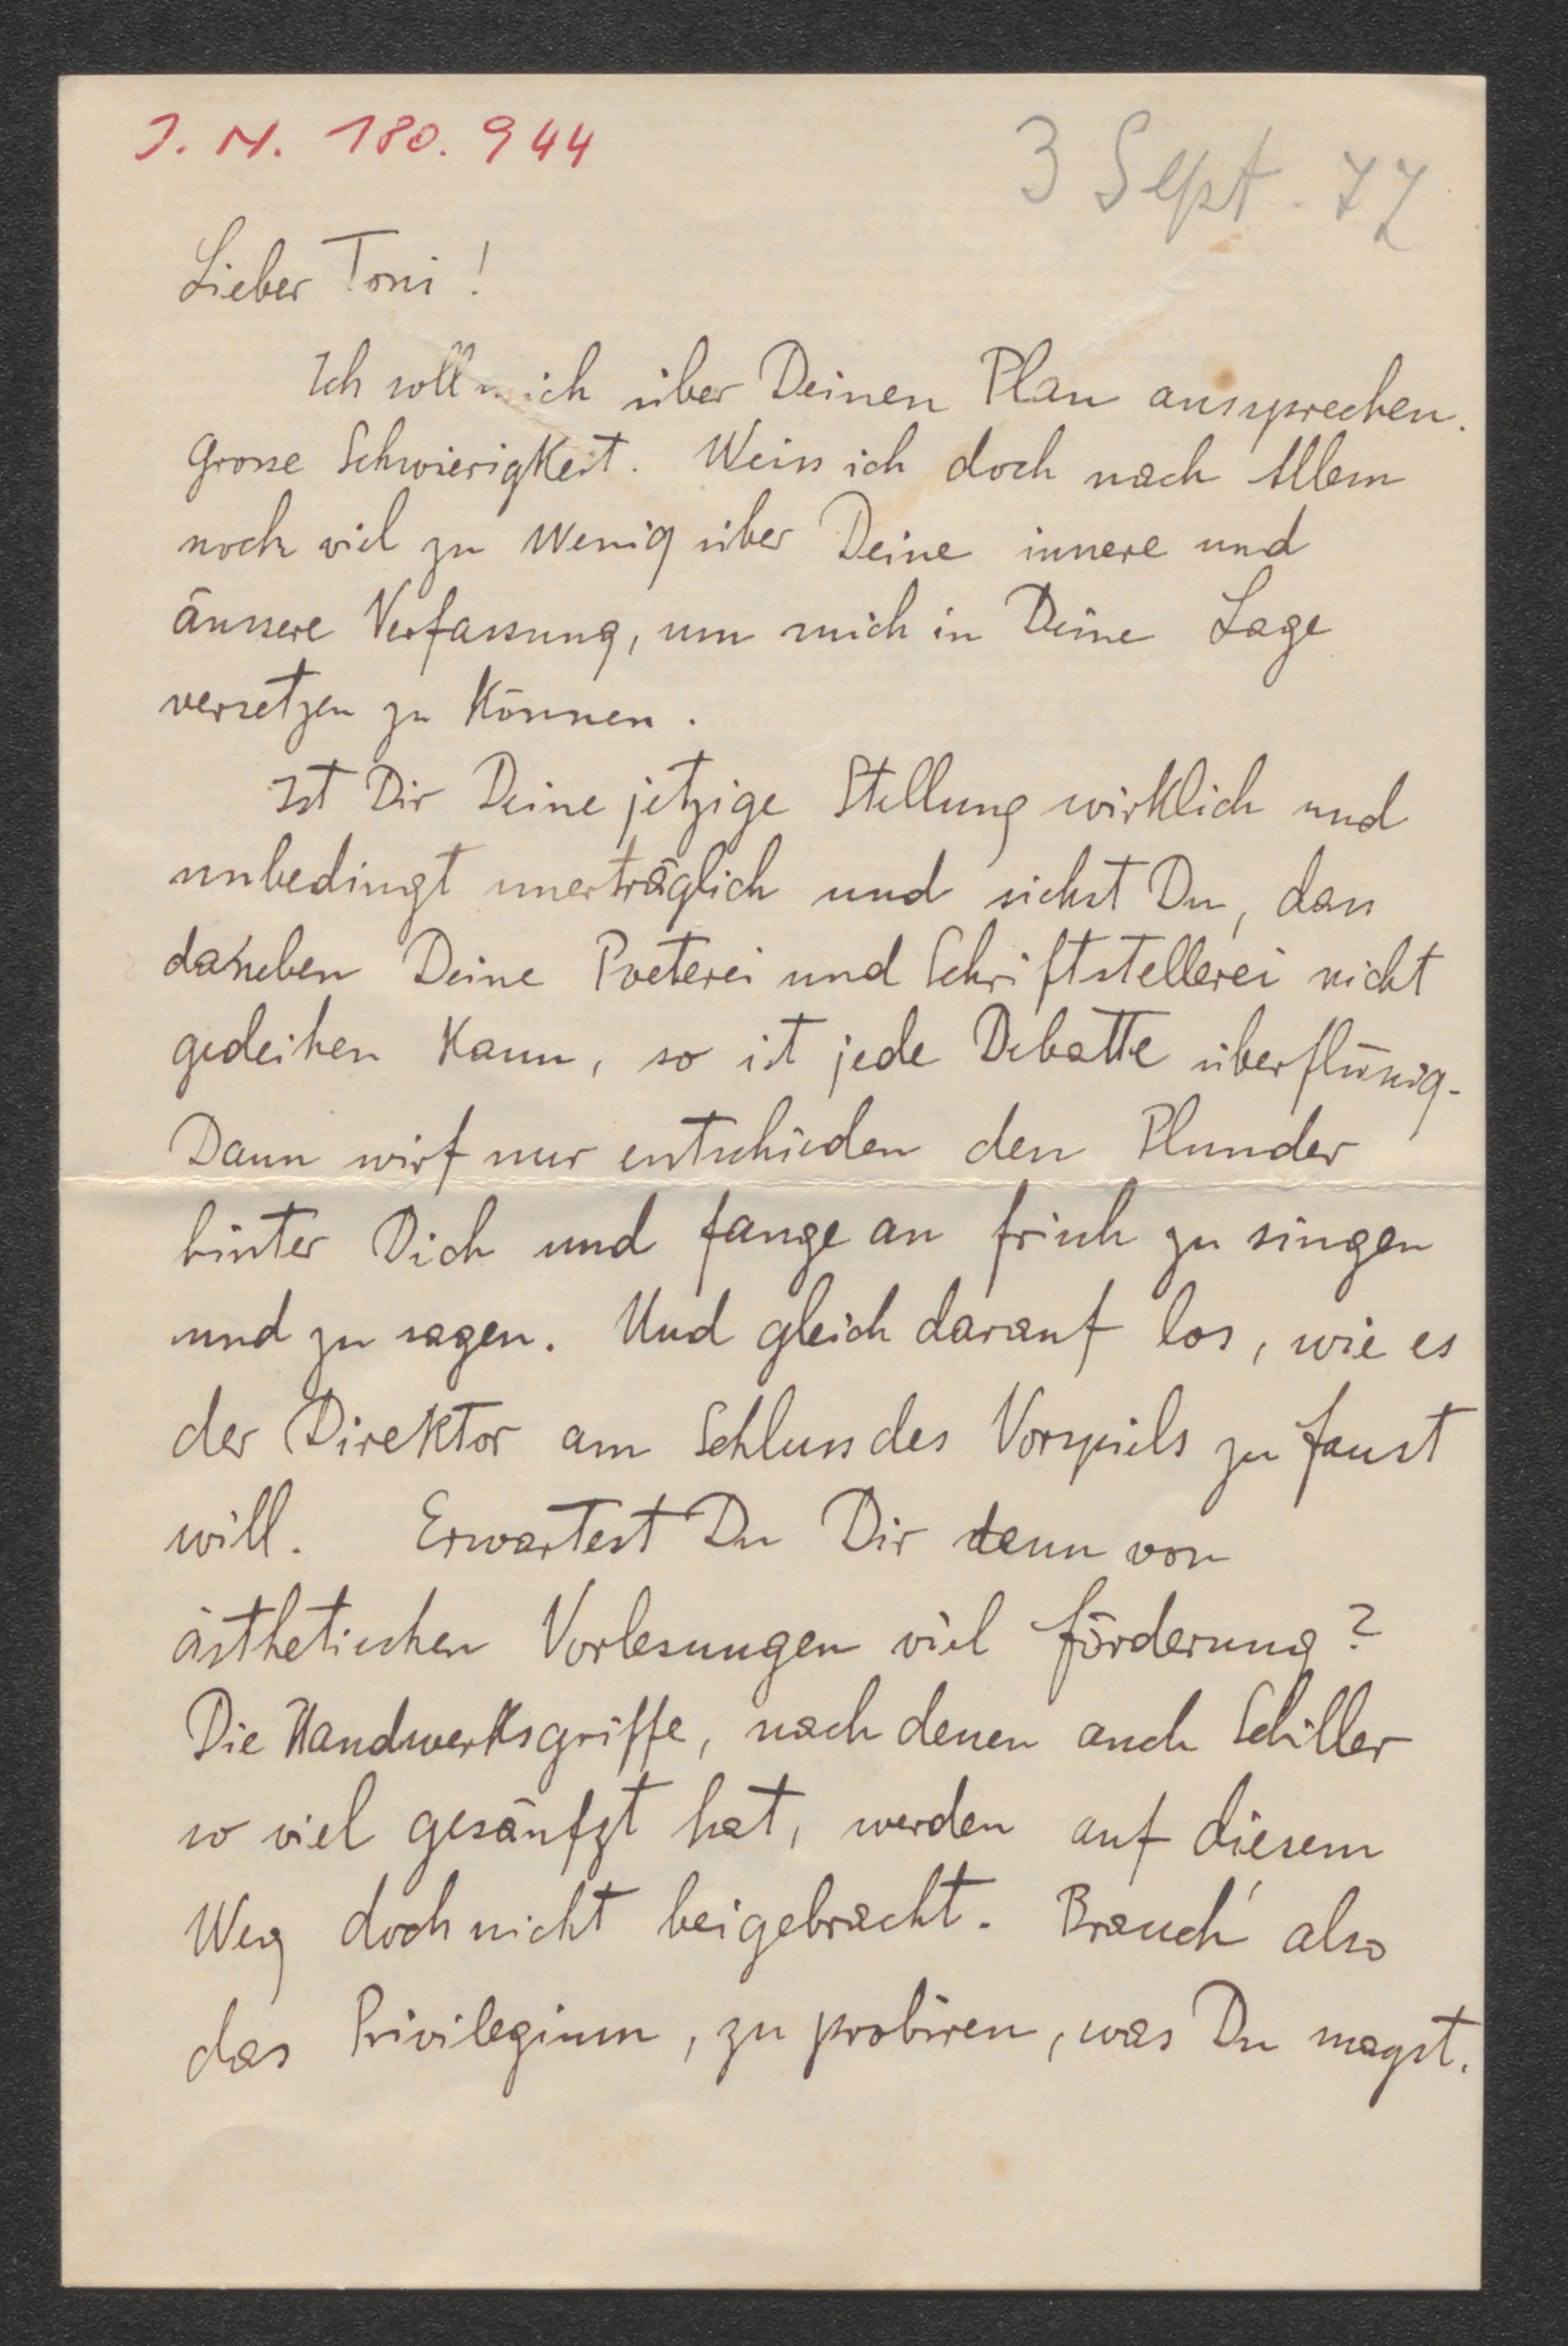 J. N. 180.944
3 Sept. 77
Lieber Toni!
Ich soll mich über Deinen Plan aussprechen.
Grosse Schwierigkeit. Weiss ich doch nach Allem
noch viel zu wenig über Deine innere und
äussere Verfassung, um mich in Deine Lage
versetzen zu können.
Ist Dir Deine jetzige Stellung wirklich und
unbedingt unerträglich und siehst Du, dass
daneben Deine Poeterei und Schriftstellerei nicht
gedeihen kann, so ist jede Debatte überflüssig.
Dann wirf nur entschieden den Plunder
hinter Dich und fange an frisch zu singen
und zu sagen. Und gleich darauf los, wie es
der Direktor am Schluss des Vorspiels zu Faust
will. Erwartest Du Dir denn von
ästhetischen Vorlesungen viel Förderung?
Die Handwerksgriffe, nach denen auch Schiller
so viel gesäufzt hat, werden auf diesem
Weg doch nicht beigebracht. Brauch' also
das Privilegium, zu probiren, was Du magst.